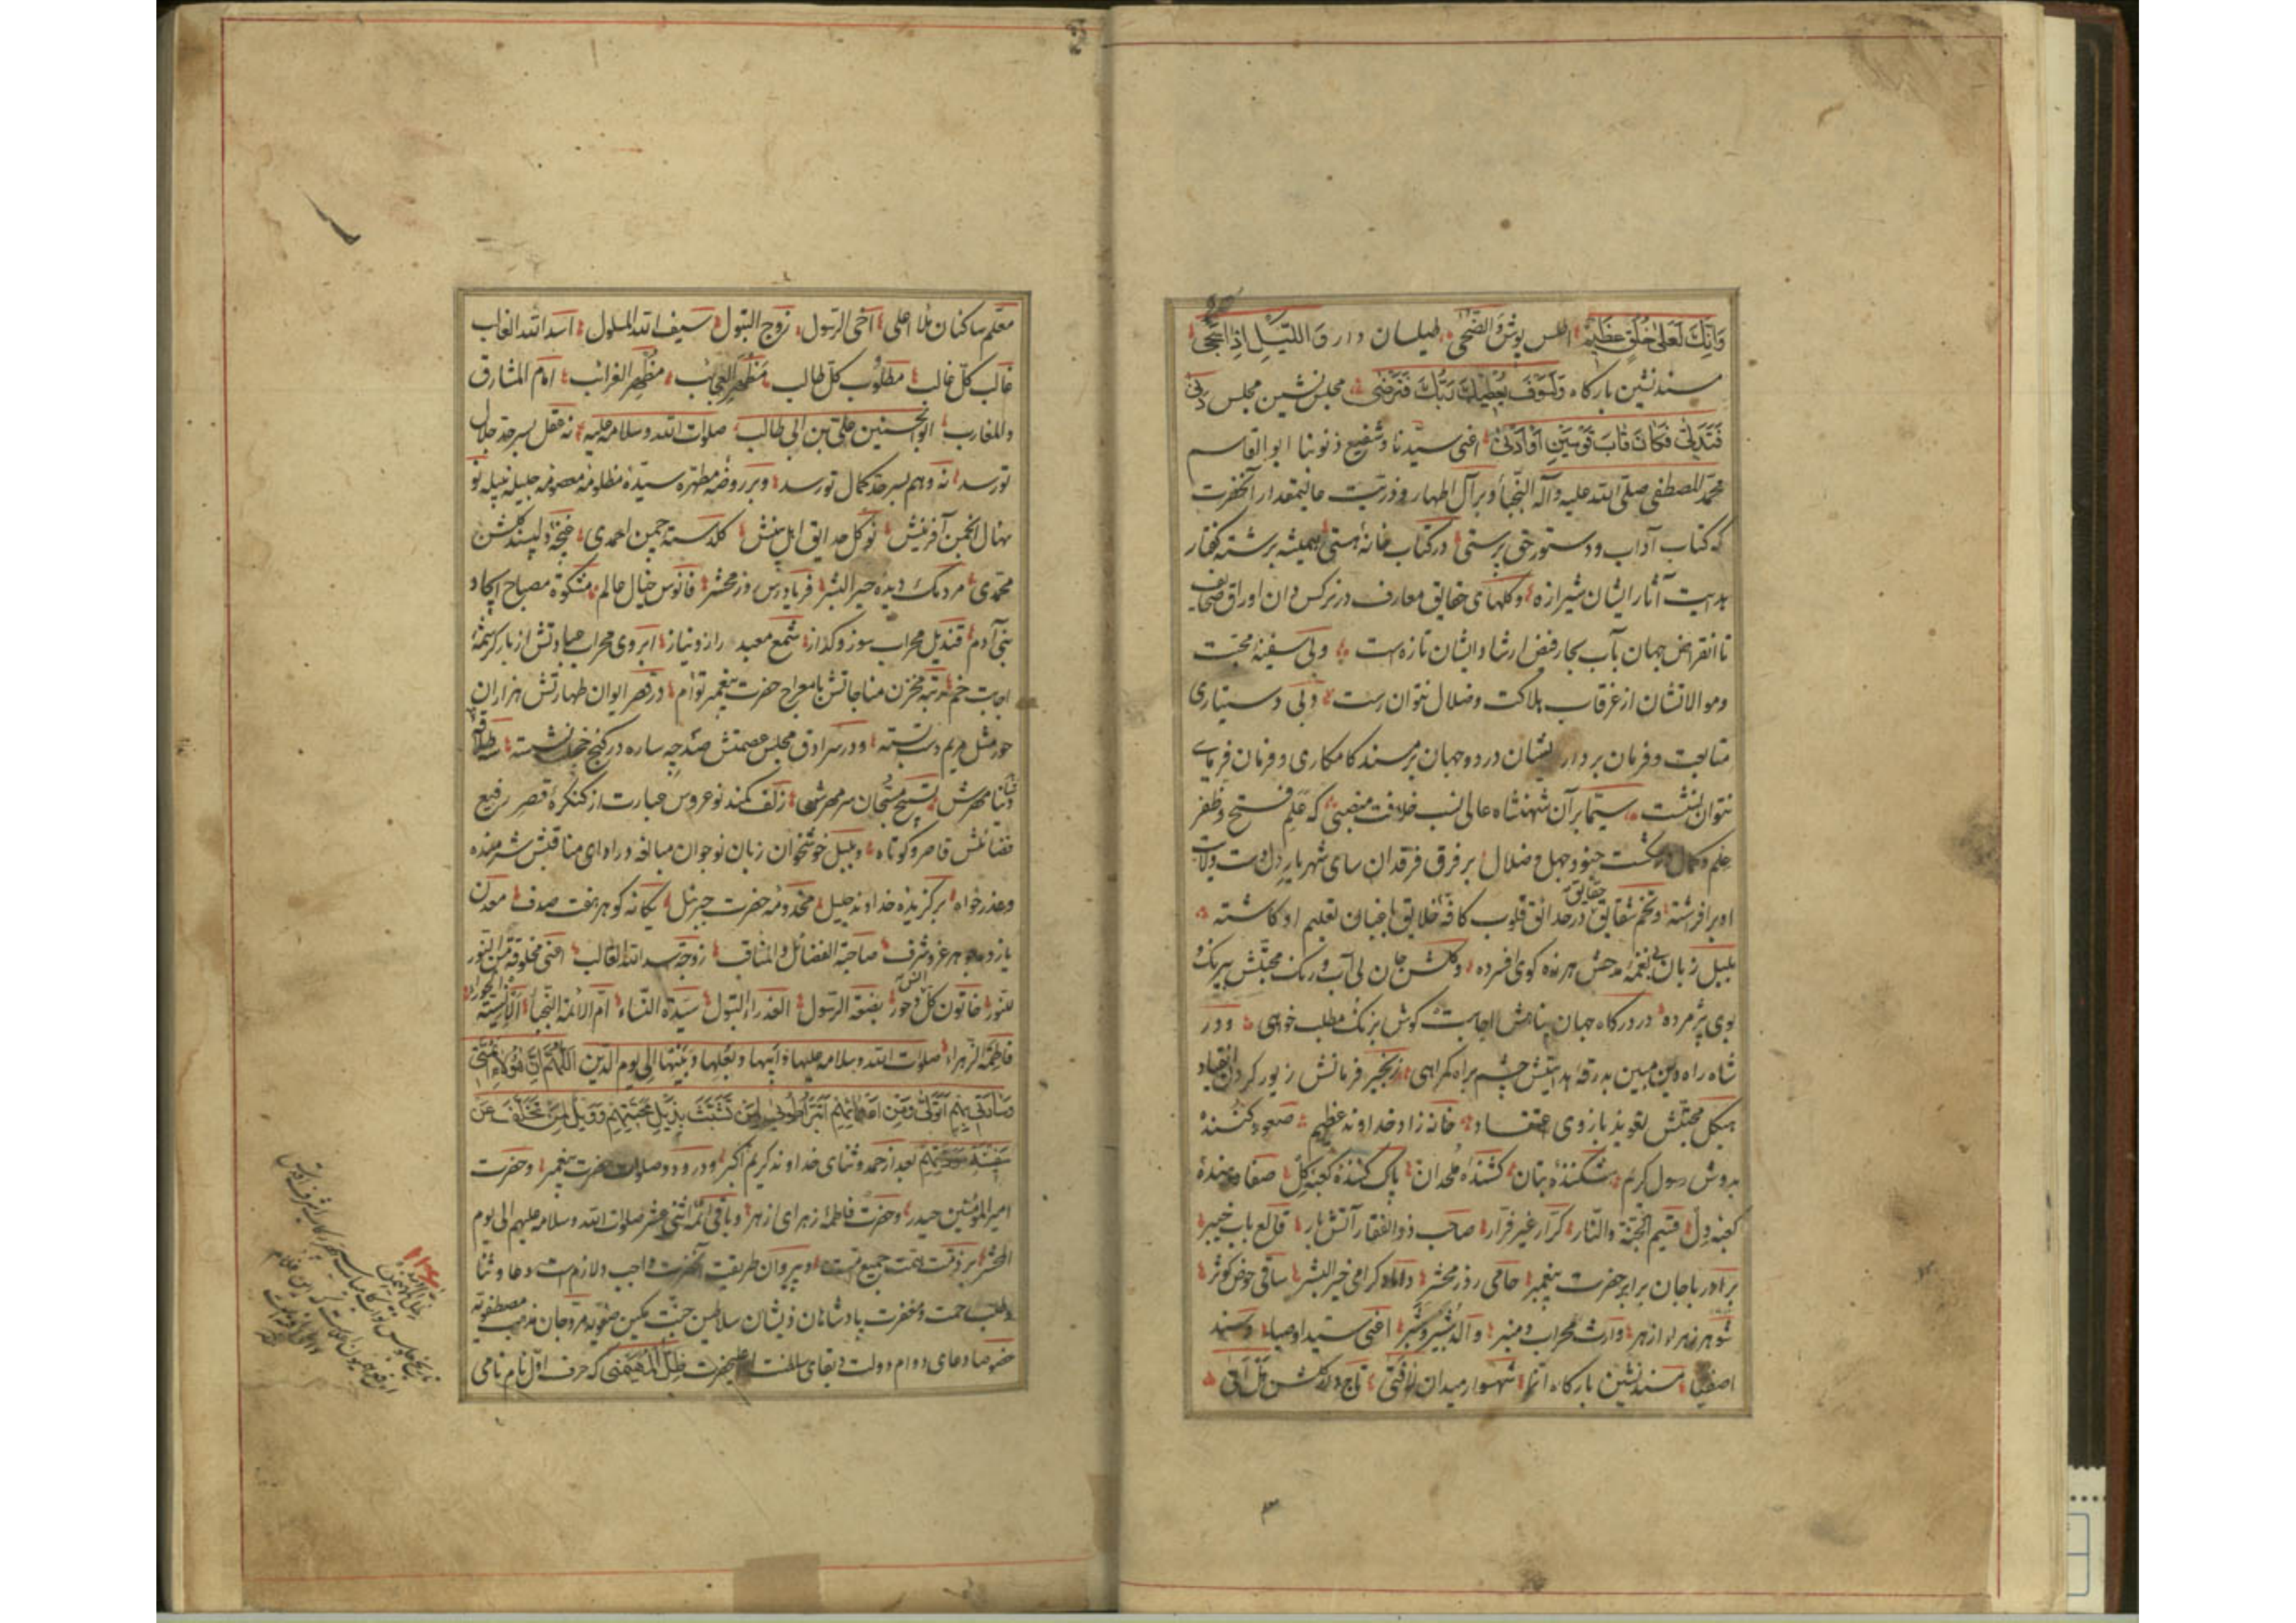 وَاِنَّكَ لَعَلىٰ خُلُقٍ عَظيمٍ اطلس پوش وَالضُّحى طیلسان دار وَاللَّيْلِ اِذا سَجى
مسندنشین بارگاه وَلَسَوْفَ يُعْطيكَ رَبُّكَ فَتَرْضى مجلس نشین مجلس دَنى
فَتَدَلّى فَكانَ قابَ قَوْسَيْنِ اَوْ اَدْنى اعنی سیّدنا و شفیع ذنوبنا ابو القاسم
محمّد المصطفی صلّی الله علیه وآله النجبا و بر آل اطهار و ذرّیت عالیمقدار آنحضرت
که کتاب آداب و دستور حق پرستی در کتاب خانهٔ هستی همیشه برشته گفتار
هدایت آثار ایشان شیرازه و گلهای حقایق معارف در نرکس دان اوراق صحایف
تا انقراض جهان بآب بحار فیض ارشاد ایشان تازه است و بی سفینهٔ محبّت
و موالاتشان از غرقاب هلاکت و ضلال نتوان رست و بی دستیاری
متابعت و فرمان بردار ایشان در دو جهان بر مسند کامکاری و فرمان فرمای
نتوان نشست سیّما بر آن شهنشاه عالی نسب خلافت منصبی که علم فتح و ظفر
علم و کمال در کشت جنود جهل و ضلال بر فرق فرقدان سای شهریار دل ولایت
او بر افراشته و تخم شقایق حقایق در حدائق قلوب کافّه خلایق باغبان تعلیم او کاشته
بلبل زبان بی نغمهٔ مدحش هرزه کوی افسرده و گلشن جان بی آب و رنگ محبّتش بیرنگ و
بوی پژمرده در درگاه جهان پناهش اجابت گوش بزنگ مطلب خواهی و در
شاه راه دین مبین بدرقهٔ هدایتش چشم براه گمراهی زنجیر فرمانش زیور گردن انقیاد
هیکل محبّتش تعویذ بازوی اعتقاد خانه زاد خداوند عظیم صعود کنندهٔ
بدوش رسول کریم شکنندهٔ بتان کشندهٔ ملحدان پاک کنندهٔ کعبه گل صفا دهندهٔ
کعبه دل قسیم الجنّة والنّار کرّار غیر فرّار صاحب ذوالفقار آتش بار قالع باب خیبر
برادر با جان برابر حضرت پیغمبر حامی روز محشر داماد گرامی خیر البشر ساقی حوض کوثر
شوهر زهراء ازهر وارث محراب و منبر والد شبیر و شبر اعنی سیّد اوصیا و سند
اصفیا مسندنشین بارگاه انّما شهسوار میدان لافتی تاج دار گلشن هل اتی
معلّم ساکنان ملأ اعلی اخی الرسول زوج البتول سیف الله المسلول اسد الله الغالب
غالب کلّ غالب مطلوب کلّ طالب مظهر العجایب مظهر الغرائب امام المشارق
والمغارب ابو الحسنین علی بن ابی طالب صلوات الله وسلامه علیه نه عقل بسرحد جلال
تو رسد نه وهم بسرحد کمال تو رسد و بر روضهٔ مطهره سیّدهٔ مظلومهٔ معصومه جلیله نبیله نو
نهال انجمن آفرینش نوگل حدایق اهل بینش گلدسته چمن احمدی غنچهٔ دلپسند گلشن
محمّدی مردمک دیده خیر البشر فریادرس روز محشر فانوس خیال عالم مشکوة مصباح ایجاد
بنی آدم قندیل محراب سوز و گداز شمع معبد راز و نیاز ابروی محراب عبادتش از بار کرشمهٔ
اجابت خم رتبه مخزن مناجاتش با معراج حضرت پیغمبر توأم در قصر ایوان طهارتش هزاران
حور مثل مریم دست بسته و در سرادق مجلس عصمتش صد چه ساره در کنج خجلت نشسته
تسبیح مسبّحان سر مهرش زلف کمند نوعروس عبارت از کنگرهٔ قصر رفیع
فضائلش قاصر و کوتاه و بلبل خوشخوان زبان نوجوان مبالغه در ادای مناقبش شرمنده
و عذر خواه برگزیده خداوند جلیل مخدومه حضرت جبرئیل یگانه گوهر هفت صدف معدن
یازده جوهر عز و شرف صاحبة الفضائل والمناقب زوجة اسد الله الغالب اعنی مخلوقة من النّور
للنّور خاتون کلّ حور بضعة الرسول العذراء البتول سیّدة النّساء امّ الائمّة النّجبا الانسیّة الحوراء
فاطمة الزهراء صلوات الله وسلامه علیها وابیها وبعلها وبنیها الی یوم الدین اللّهمّ انّ هؤلاء ائمّتی
وسادتی بهم اتولّی ومن اعدائهم اتبرّأ طوبی لمن تشبّث بذیل محبّتهم وویل لمن تخلّف عن
بعد از حمد و ثنای خداوند کریم اکبر و درود و صلوات حضرت پیغمبر و حضرت
امیر المؤمنین حیدر و حضرت فاطمهٔ زهرای ازهر و باقی ائمّهٔ اثنی عشر صلوات الله وسلامه علیهم الی یوم
المحشر بر ذمّت همّت جمیع امّت و پیروان طریقت آنحضرت واجب و لازم است دعا و ثنا
و طلب رحمت و مغفرت پادشاهان ذیشان سلاطین جنّت مکین صفویه مروّجان مذهب مصطفویّه
خصوصا دعای دوام دولت و بقای سلطنت اعلیحضرت ظلّ المهیمنی که حرف اوّل نام نامی